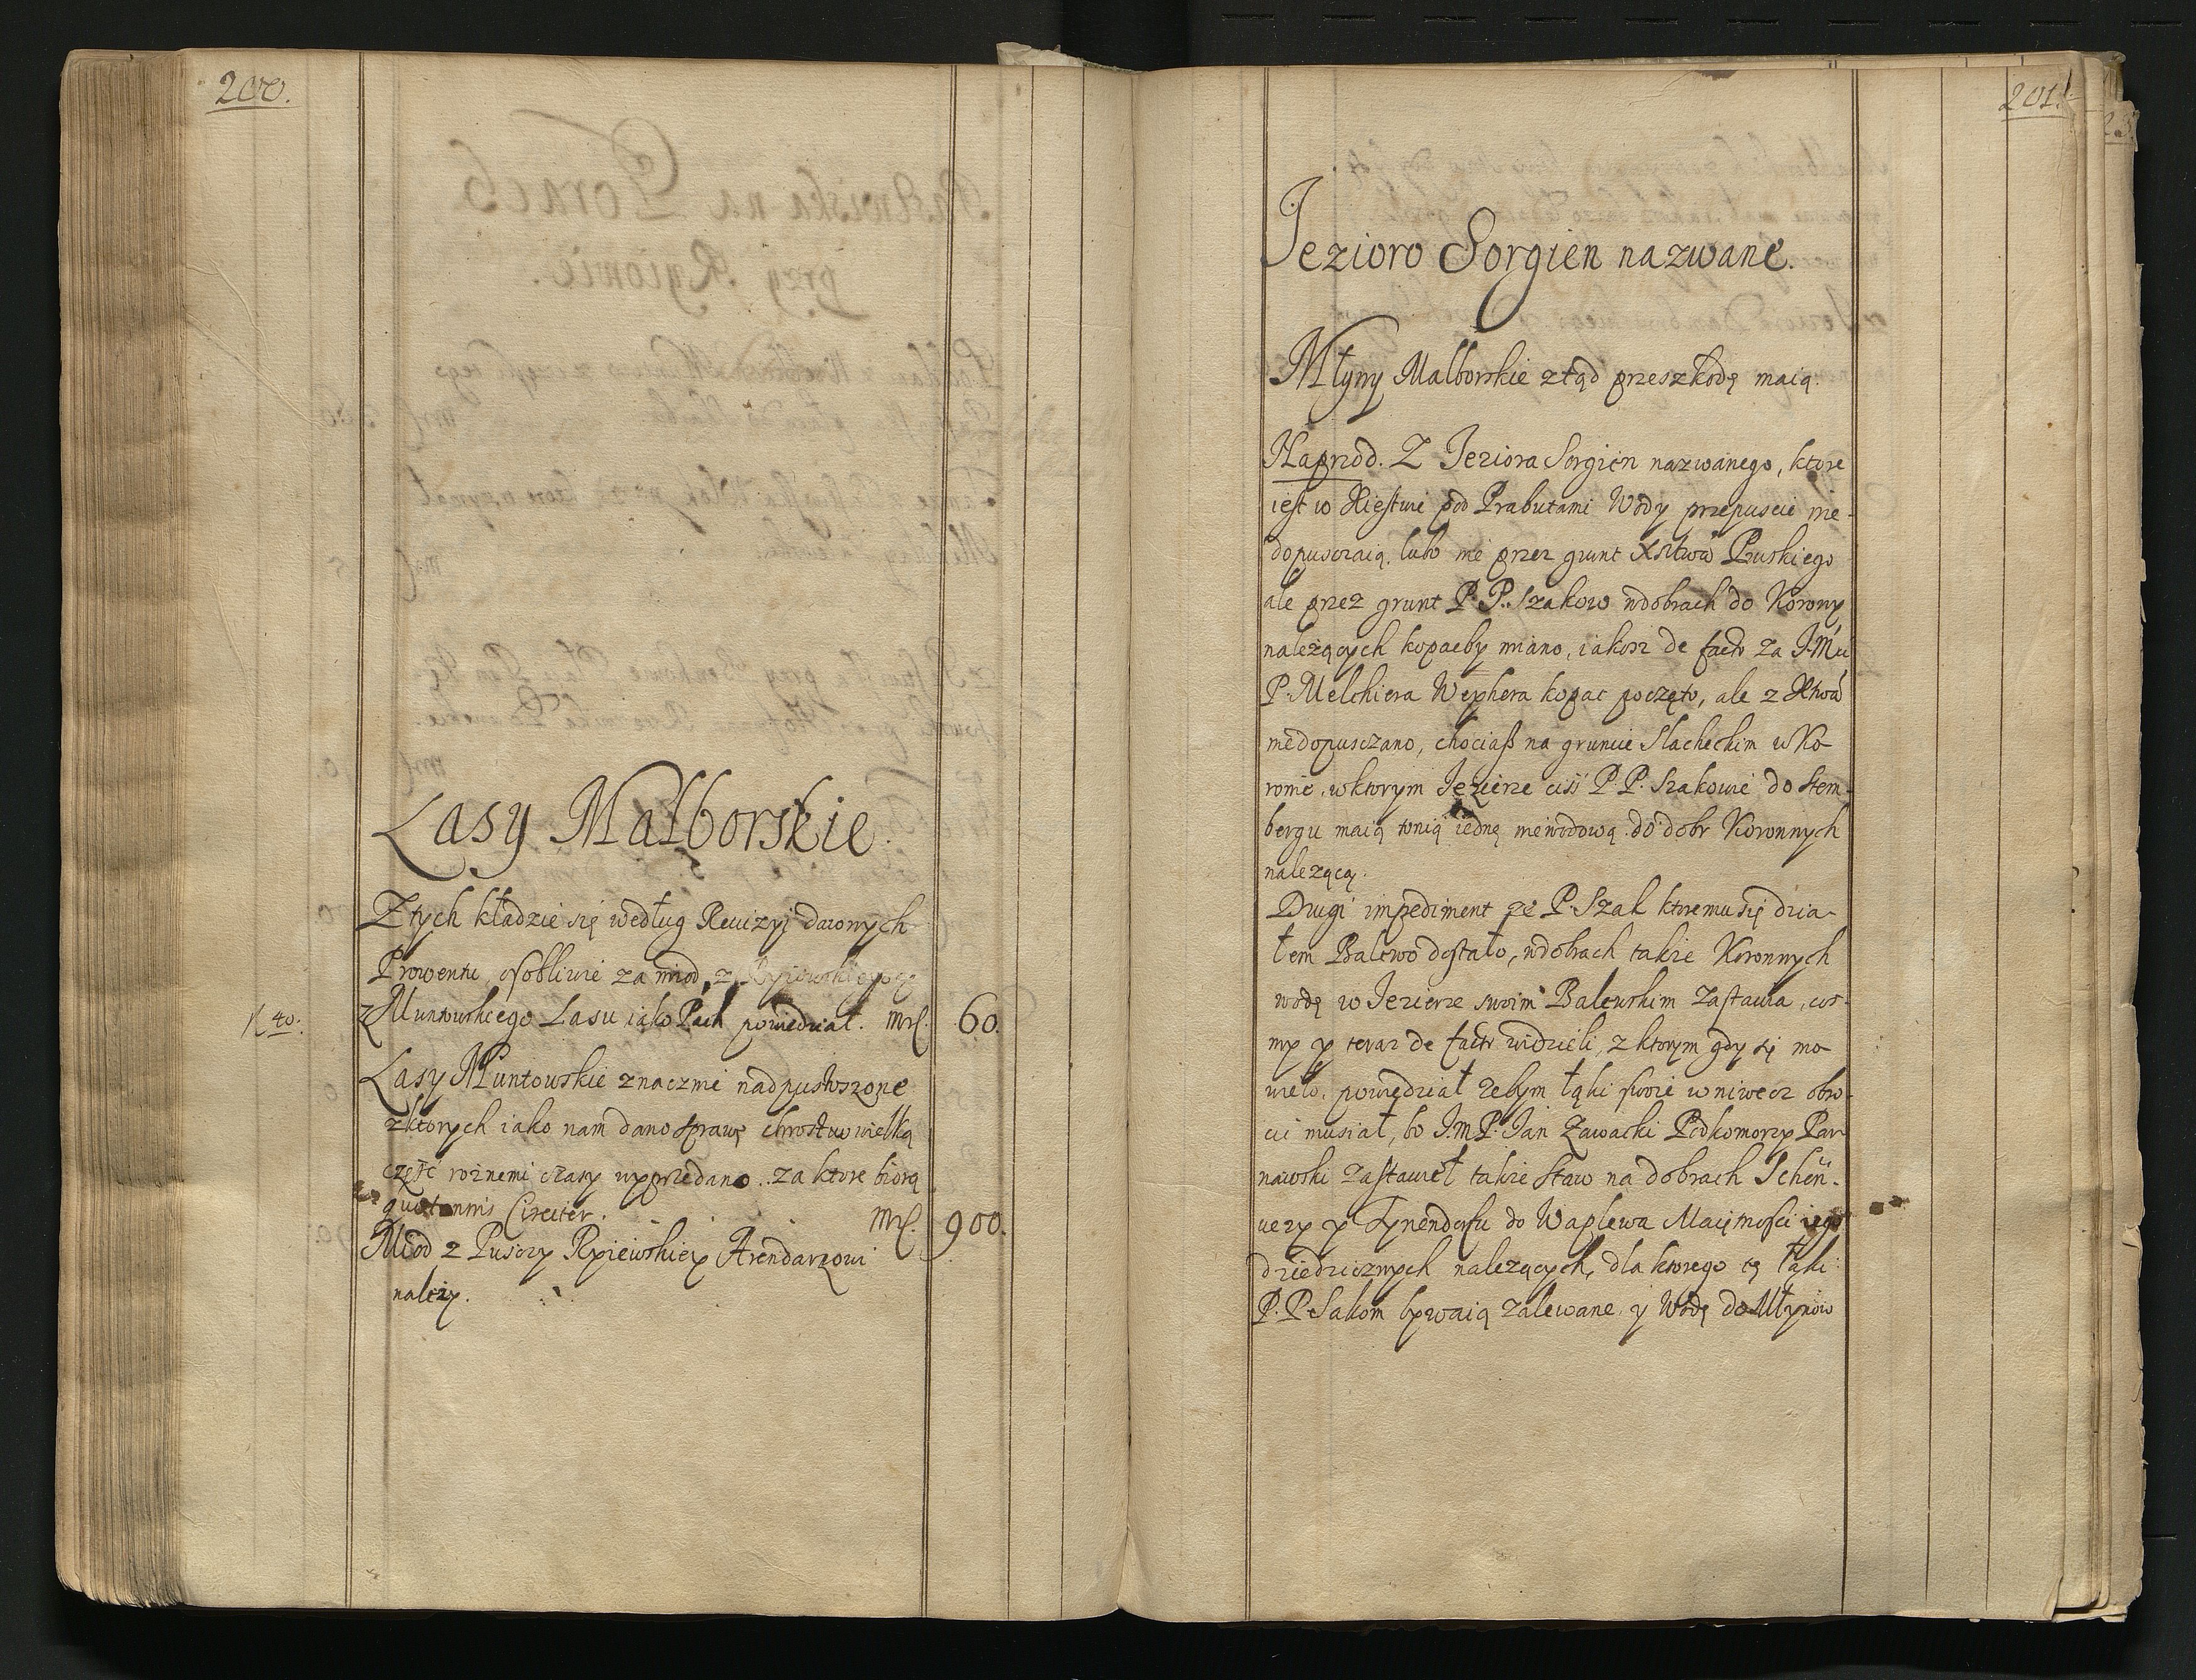 200.
Lasy Malborskie.
Z tych kładzie się według Rewizyj dawnych
Prowentu osobliwie za miod, z
z Muntowskiego Lasu iako Pach powiedział. mrl. 60.
N 40.
Lasy Muntowskie znacznie nadpustoszone
z ktorych iako nam dano sprawę chrostu wielką
część roznemi czasy wyprzedano. za ktore biorą
quotannis Circiter. Mrl. 900.
Miod z Pusczy Ryiewskiey Arendarzowi
należy.
201.
Iezioro Sorgien nazwane.
Młyny Malborskie ztąd przeszkodę maią.
Naprzod. Z Ieziora Sorgien nazwanego, ktore
iest w Xiestwie pod Prabutami Wody przepuscic nie
dopusczaią. lubo nie przez grunt Xstwa Pruskiego
ale przez grunt P. P. Szakow w dobrach do Korony
należących kopacby miano, iakosz de facto za I. Mci
P. Melchiera Weyhera kopac poczęto, ale z Xtwa
niedopusczano, chociaß na gruncie Slacheckim w Ko-
ronie, w ktorym Iezierze ciß P. P. Szakowie do Stem-
bergu maią tonią iedną niewodową do dobr Koronnych
nalezącą.
Drugi impediment ze P. Szak ktoremu się dzia-
łem Balewo dostało, w dobrach takze Koronnych
wodę w Iezierze swoim Balewskim zastawia, cos-
my y teraz de facto widzieli, z ktorym gdy się mo-
wiło, powiedział zebym łąki swoie wniwecz obro-
cic musiał, bo I. M P. Ian Zawacki Podkomorzy Par
nawski zastawił takze staw na dobrach Schen-
wezy y Tynendorfu do Waplewa Maiętnosci iego
dziedzicznych nalezących, dla ktorego tę łąki
P. P. Sakom bywaią zalewane, y Wodę do Młynow